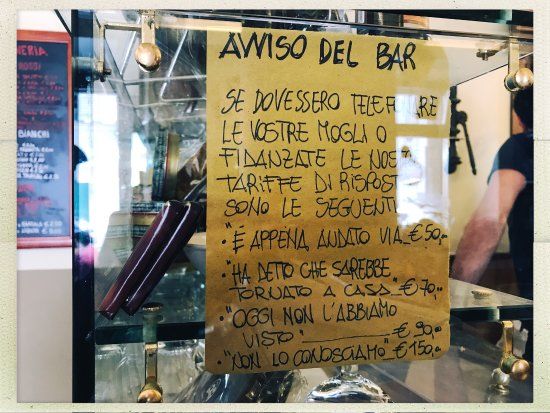 NERIA
ROSSI
BIANCHI
AVVISO DEL BAR
SE DOVESSERO TELEFONARE
LE VOSTRE MOGLI O
FIDANZATE LE NOS
TARIFFE DI RISPOST
SONO LE SEGUENTI
• "È APPENA ANDATO VIA € 50,-
• "HA DETTO CHE SAREBBE
TORNATO A CASA" € 70,-
• "OGGI NON L'ABBIAMO
VISTO" € 90,-
• "NON LO CONOSCIAMO" € 150,-